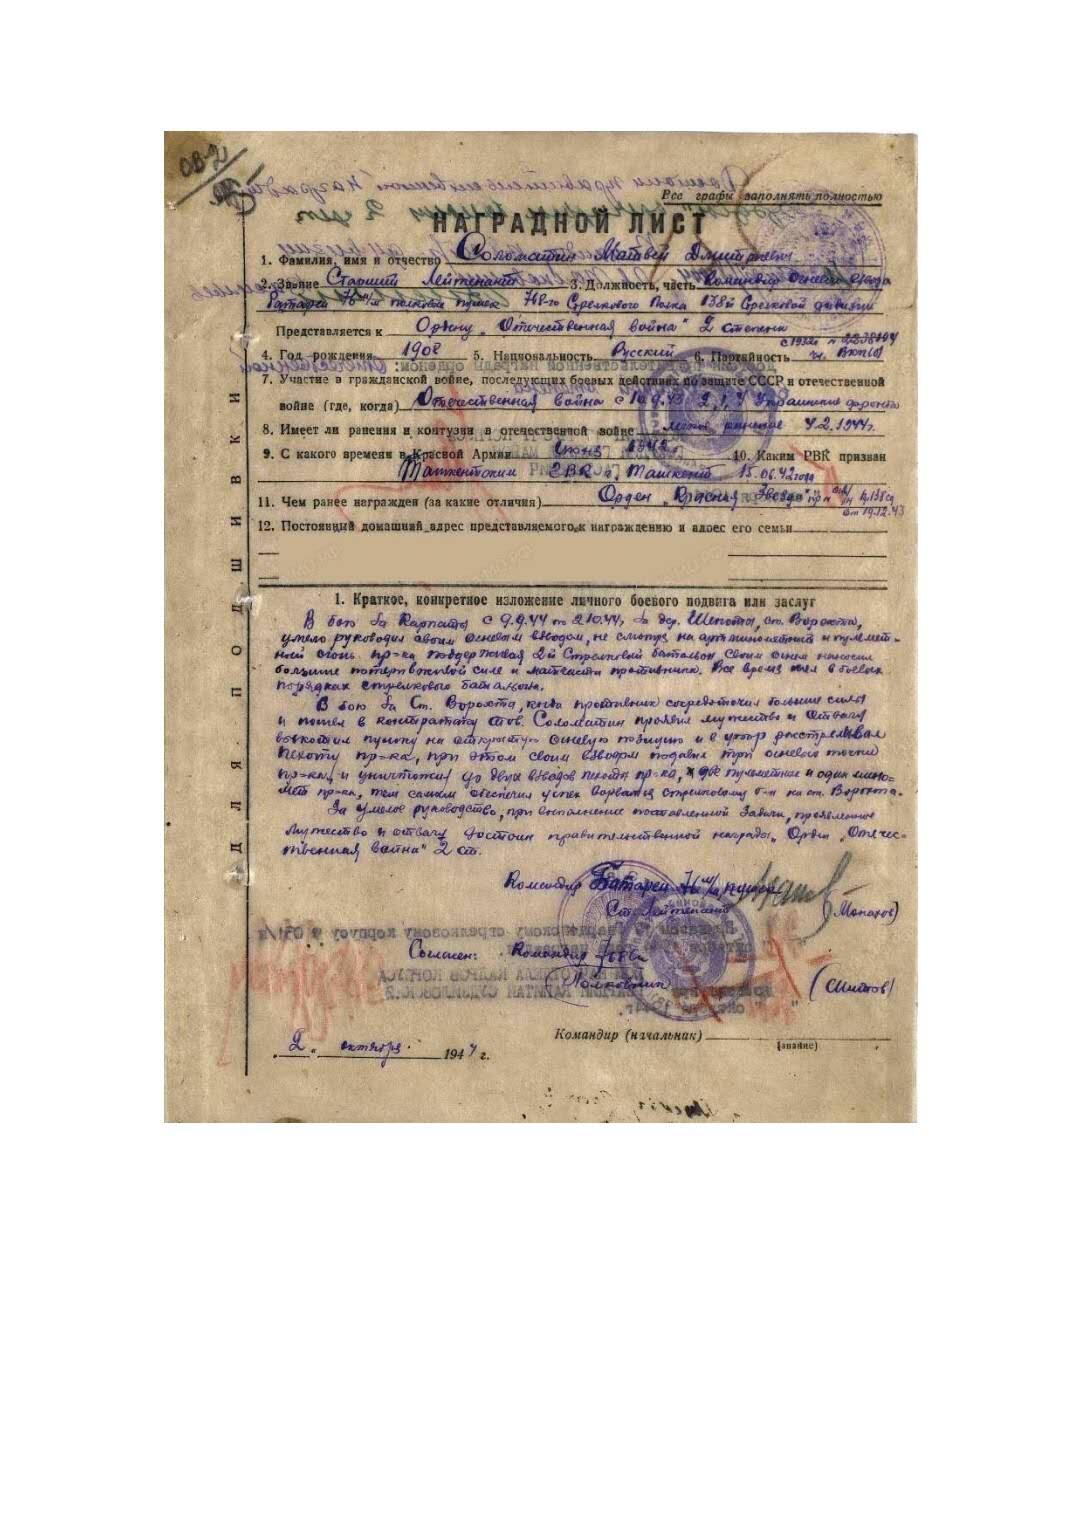 Все графы заполнять полностью
НАГРАДНОЙ ЛИСТ
1. Фамилия, имя и отчество Соломатин Матвей Дмитриевич
2. Звание Старший Лейтенант 3. Должность, часть Командир огневого взвода
Батареи 76 м/м полковых пушек 768-го Стрелкового Полка 138й Стрелковой дивизии
Представляется к Ордену „Отечественная война" 2 степени
4. Год рождения 1908 5. Национальность Русский 6. Партийность чл. ВКП(б)
7. Участие в гражданской войне, последующих боевых действиях по защите СССР и отечественной
войне (где, когда) Отечественная война с 10.9.43 2, 1, 4 Украинские фронты
8. Имеет ли ранения и контузии в отечественной войне легкое ранение 4.2.1944г.
9. С какого времени в Красной Армии Июнь 1942 10. Каким РВК призван
Ташкентским ГВК г. Ташкент 15.06.42 года
11. Чем ранее награжден (за какие отличия) Орден „Красная Звезда" пр 138сд
от 19.12.43
12. Постоянный домашний адрес представляемого к награждению и адрес его семьи
1. Краткое, конкретное изложение личного боевого подвига или заслуг
В бою за Карпаты с 9.9.44 по 2.10.44г за дер. Шепоты, ст. Ворохта,
умело руководил своим огневым взводом, не смотря на артминометный и пулемет-
ный огонь пр-ка поддерживая 2й Стрелковый батальон своим огнем наносил
большие потери в живой силе и матчасти противника. Все время шел в боевых
порядках стрелкового батальона.
В бою за Ст. Ворохта, когда противник сосредоточил большие силы
и пошел в контратаку тов. Соломатин проявил мужество и отвагу
выкатил пушку на открытую огневую позицию и в упор расстреливал
пехоту пр-ка, при этом своим взводом подавил три огневые точки
пр-ка, и уничтожил до двух взводов пехоты пр-ка, две пулеметные и один мино-
мет пр-ка, тем самым обеспечил успех ворваться стрелковому б-н на ст. Ворохта.
За умелое руководство, при выполнение поставленной задачи, проявленное
мужество и отвагу достоин правительственной награды „Орден „Отечес-
твенная война" 2 ст.
Командир Батареи 76 м/м пушек
Ст. Лейтенант (Монахов)
Согласен: Командир 768сп
Полковник (Шитов)
Командир (начальник)
(звание)
„2" октября 1944 г.
ДЛЯ ПОДШИВКИ